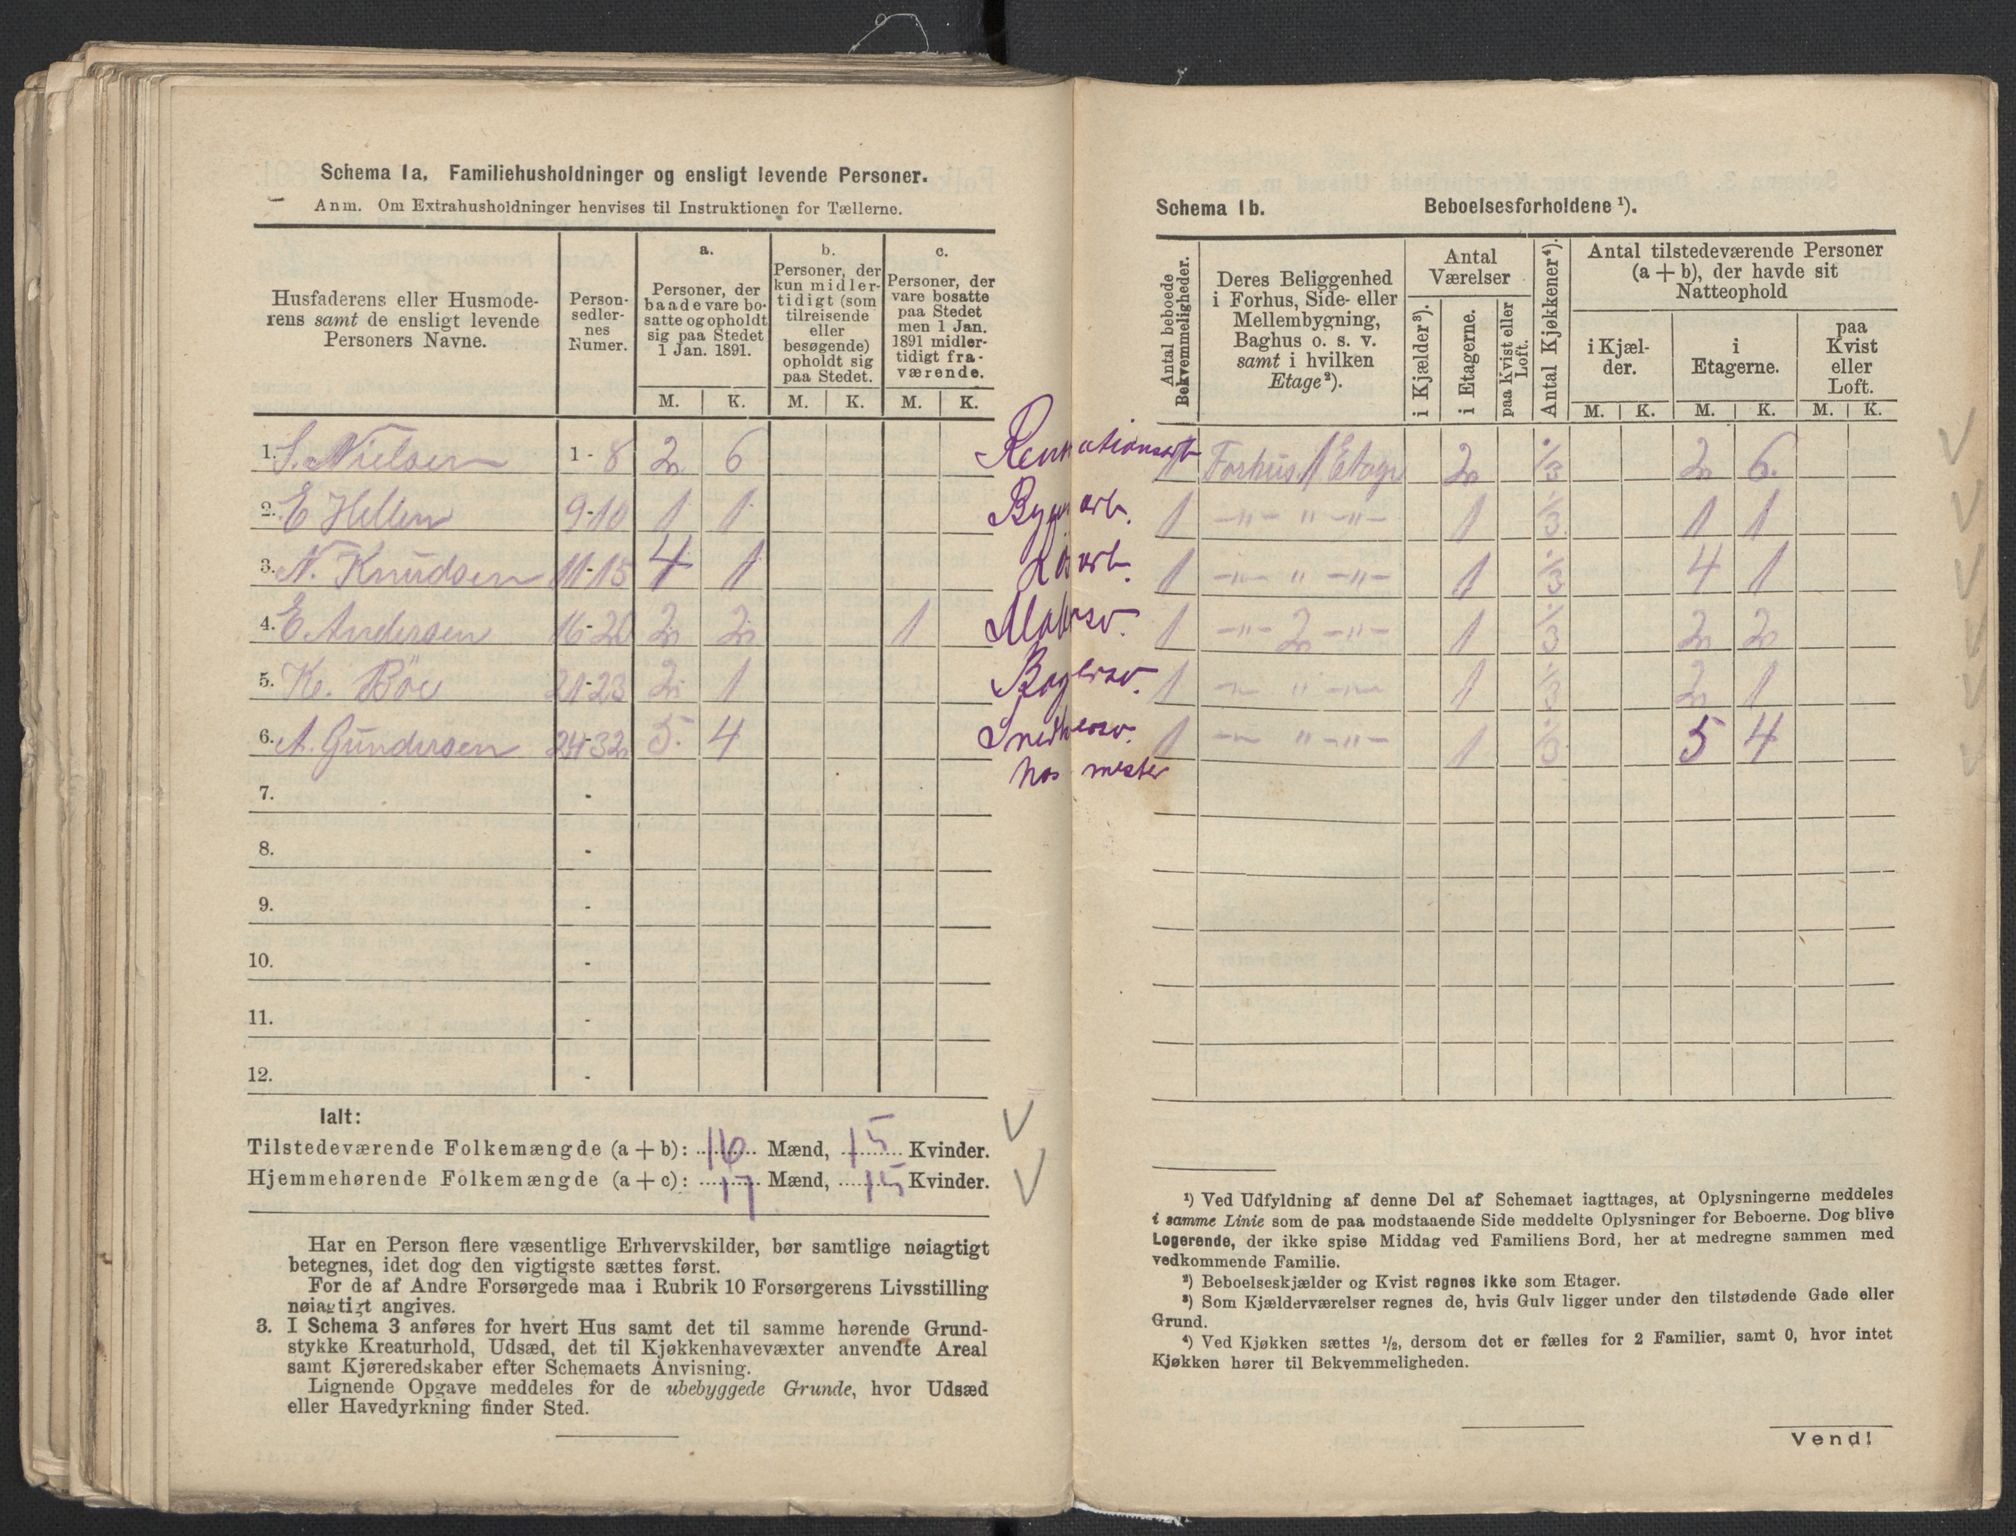 Schema 1a. Familiehusholdninger og ensligt levende Personer.
Anm. Om Extrahusholdninger henvises til Instruktionen for Tællerne.
Husfaderens eller Husmoderens samt de ensligt levende Personers Navne.
Personsedlernes Numer.
a.
Personer, der
baade vare bo-
satte og opholdt
sig paa Stedet
1 Jan. 1891.
b.
Personer, der
kun midler-
tidigt (som
tilreisende
eller
besøgende)
opholdt sig
paa Stedet.
c.
Personer, der
vare bosatte
paa Stedet
men 1 Jan.
1891 midler-
tidigt fra-
værende.
M. K. M. K. M. K.
1. S. Nielsen 1-8 2 6
2. E Hellen 9-10 1 1
3. N. Knudsen 11-15 4 1
4. E. Andersen 16-20 2 2 1
5. K. Böe 21-23 2 1
6. A. Gundersen 24-32 5 4
7. -
8. -
9. -
10. -
11. -
12. -
Ialt:
Tilstedeværende Folkemængde (a + b): 16 Mænd, 15 Kvinder.
Hjemmehørende Folkemængde (a + c): 17 Mænd, 15 Kvinder.
Har en Person flere væsentlige Erhvervskilder, bør samtlige nøiagtigt
betegnes, idet dog den vigtigste sættes først.
For de af Andre Forsørgede maa i Rubrik 10 Forsørgerens Livsstilling
nøiagtigt angives.
3. I Schema 3 anføres for hvert Hus samt det til samme hørende Grund-
stykke Kreaturhold, Udsæd, det til Kjøkkenhavevæxter anvendte Areal
samt Kjøreredskaber efter Schemaets Anvisning.
Lignende Opgave meddeles for de ubebyggede Grunde, hvor Udsæd
eller Havedyrkning finder Sted.
Schema 1b. Beboelsesforholdene ¹).
Antal beboede
Bekvemmeligheder.
Deres Beliggenhed
i Forhus, Side- eller
Mellembygning,
Baghus o. s. v.
samt i hvilken
Etage ²).
Antal
Værelser
i Kjælder ³).
i Etagerne.
paa Kvist eller
Loft.
Antal Kjøkkener ⁴).
Antal tilstedeværende Personer
(a + b), der havde sit
Natteophold
i Kjæl-
der.
i
Etagerne.
paa
Kvist
eller
Loft.
M. K. M. K. M. K.
Renovationsarb 1 Forhus 1 Etage 2 1/3 2 6.
arb. 1 -"- " -"- 1 1/3 1 1
arb. 1 -"- " -"- 1 1/3 4 1
Malersv. 1 -"- 2 -"- 1 1/3 2 2
Bagersv. 1 -"- " -"- 1 1/3 2 1
Snedkersv. 1 -"- " -"- 1 1/3 5 4
hos mester
¹) Ved Udfyldning af denne Del af Schemaet iagttages, at Oplysningerne meddeles
i samme Linie som de paa modstaaende Side meddelte Oplysninger for Beboerne. Dog blive
Logerende, der ikke spise Middag ved Familiens Bord, her at medregne sammen med
vedkommende Familie.
²) Beboelseskjælder og Kvist regnes ikke som Etager.
³) Som Kjælderværelser regnes de, hvis Gulv ligger under den tilstødende Gade eller
Grund.
⁴) Ved Kjøkken sættes ½, dersom det er fælles for 2 Familier, samt 0, hvor intet
Kjøkken hører til Bekvemmeligheden.
Vend!